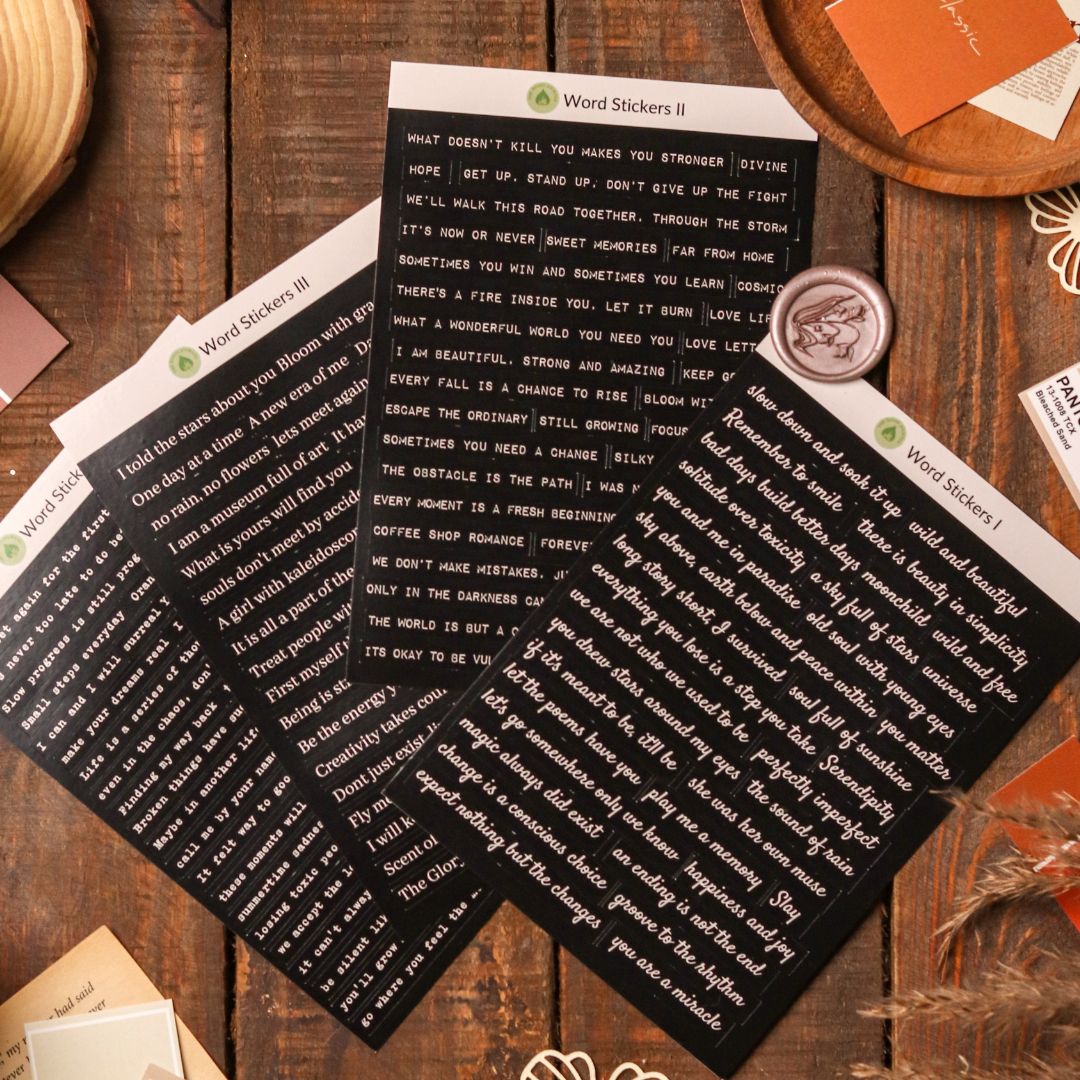 Classic
Word Stickers II
WHAT DOESN'T KILL YOU MAKES YOU STRONGER DIVINE
HOPE GET UP, STAND UP, DON'T GIVE UP THE FIGHT
WE'LL WALK THIS ROAD TOGETHER, THROUGH THE STORM
IT'S NOW OR NEVER SWEET MEMORIES FAR FROM HOME
SOMETIMES YOU WIN AND SOMETIMES YOU LEARN COSMIC
THERE'S A FIRE INSIDE YOU, LET IT BURN LOVE
WHAT A WONDERFUL WORLD YOU NEED YOU LOVE
I AM BEAUTIFUL, STRONG AND AMAZING KEEP
EVERY FALL IS A CHANCE TO RISE BLOOM
ESCAPE THE ORDINARY STILL GROWING FOCUS
SOMETIMES YOU NEED A CHANGE SILKY
THE OBSTACLE IS THE PATH I WAS
EVERY MOMENT IS A FRESH BEGINNING
COFFEE SHOP ROMANCE FOREVER
WE DON'T MAKE MISTAKES,
ONLY IN THE DARKNESS
THE WORLD IS BUT A
ITS OKAY TO BE
Word Stickers I
slow down and soak it up wild and beautiful
Remember to smile there is beauty in simplicity
bad days build better days moonchild wild and free
solitude over toxicity a sky full of stars universe
you and me in paradise old soul with young eyes
sky above, earth below and peace within you matter
long story short, I survived soul full of sunshine
everything you lose is a step you take Serendipity
we are not who we used to be perfectly imperfect
you drew stars around my eyes the sound of rain
if it's meant to be, it'll be she was her own muse
let the poems have you play me a memory Slay
let's go somewhere only we know happiness and joy
magic always did exist an ending is not the end
change is a conscious choice groove to the rhythm
expect nothing but the changes you are a miracle
Word Stickers III
I told the stars about you Bloom with
One day at a time A new era of me
no rain, no flowers lets meet again
I am a museum full of art It
What is yours will find you
souls don't meet by
A girl with
It is all a part of the
Treat people
First myself
Being is
Be the energy
Creativity takes
Dont just exist,
Fly me
I will
Scent of
The
Word
again for the first
never too late to do
Slow progress is still
Small steps everyday
I can and I will surreal
make your dreams real
Life is a series of
even in the chaos, don
Finding my way back
Broken things have
Maybe in another
call me by your name
it felt way to
these moments will
summertime
losing toxic
we accept the
it can't always
be silent
you'll grow
go where you feel the
13-1008 TCX
Bleached Sand
had said